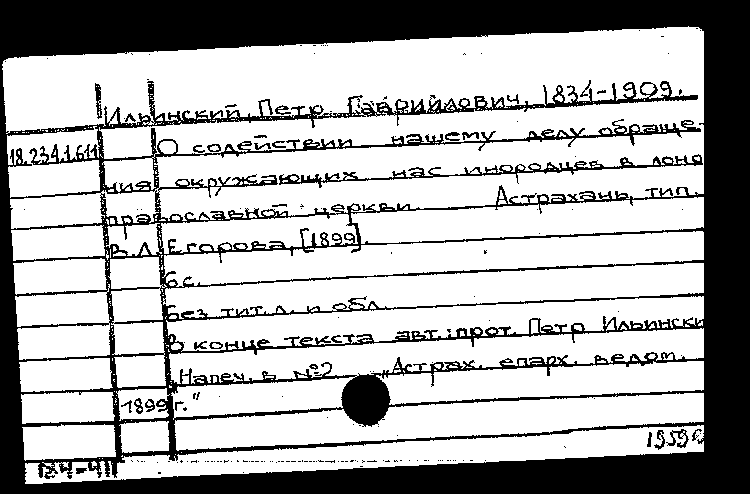 Ильинский, Петр Гаврийлович, 1834-1909.
18.234.1.611 О содействии нашему делу обраще-
ния окружающих нас инородцев в лоно
православной церкви. Астрахань, тип.
В.Л. Егорова, [1899].
6 с.
Без тит. л. и обл.
В конце текста авт.: прот. Петр Ильински
„Напеч. в №2 „Астрах. епарх. ведом.
1899 г."